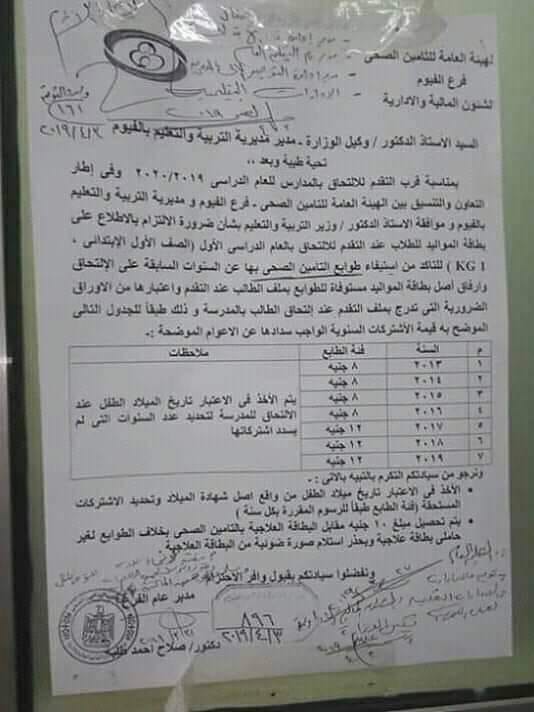 الهيئة العامة للتامين الصحى
فرع الفيوم
لشئون المالية والادارية
١٦١
٢٠١٩/٤/٣
السيد الاستاذ الدكتور / وكيل الوزارة - مدير مديرية التربية والتعليم بالفيوم
تحية طيبة وبعد ،،
بمناسبة قرب التقدم للالتحاق بالمدارس للعام الدراسى ٢٠٢٠/٢٠١٩ وفى إطار
التعاون والتنسيق بين الهيئة العامة للتامين الصحى - فرع الفيوم و مديرية التربية والتعليم
بالفيوم و موافقة الاستاذ الدكتور / وزير التربية والتعليم بشأن ضرورة الالتزام بالاطلاع على
بطاقة المواليد للطلاب عند التقدم للالتحاق بالعام الدراسى الأول (الصف الأول الإبتدائى ،
KG 1 ) للتاكد من إستيفاء طوابع التامين الصحى بها عن السنوات السابقة على الإلتحاق
وارفاق أصل بطاقة المواليد مستوفاة للطوابع بملف الطالب عند التقدم واعتبارها من الاوراق
الضرورية التى تدرج بملف التقدم عند إلتحاق الطالب بالمدرسة و ذلك طبقاً للجدول التالى
الموضح به قيمة الأشتركات السنوية الواجب سدادها عن الاعوام الموضحة :-
م السنة فئة الطابع ملاحظات
١ ٢٠١٣ ٨ جنيه
٢ ٢٠١٤ ٨ جنيه
٣ ٢٠١٥ ٨ جنيه
٤ ٢٠١٦ ٨ جنيه
٥ ٢٠١٧ ١٢ جنيه
٦ ٢٠١٨ ١٢ جنيه
٧ ٢٠١٩ ١٢ جنيه
يتم الأخذ فى الاعتبار تاريخ الميلاد الطفل عند
الالتحاق للمدرسة لتحديد عدد السنوات التى لم
يسدد اشتركاتها
ونرجو من سيادتكم التكرم بالتنبيه بالاتى :-
• الأخذ فى الاعتبار تاريخ ميلاد الطفل من واقع اصل شهادة الميلاد وتحديد الاشتركات
المستحقة (فئة الطابع طبقاً للرسوم المقررة بكل سنة )
• يتم تحصيل مبلغ ١٠ جنيه مقابل البطاقة العلاجية بالتامين الصحى بخلاف الطوابع لغير
حاملى بطاقة علاجية ويحذر استلام صورة ضوئية من البطاقة العلاجية.
وتفضلوا سيادتكم بقبول وافر الاحترام
مدير عام الفرع
٨٩٦
٢٠١٩/٤/٣
دكتور/ صلاح احمد